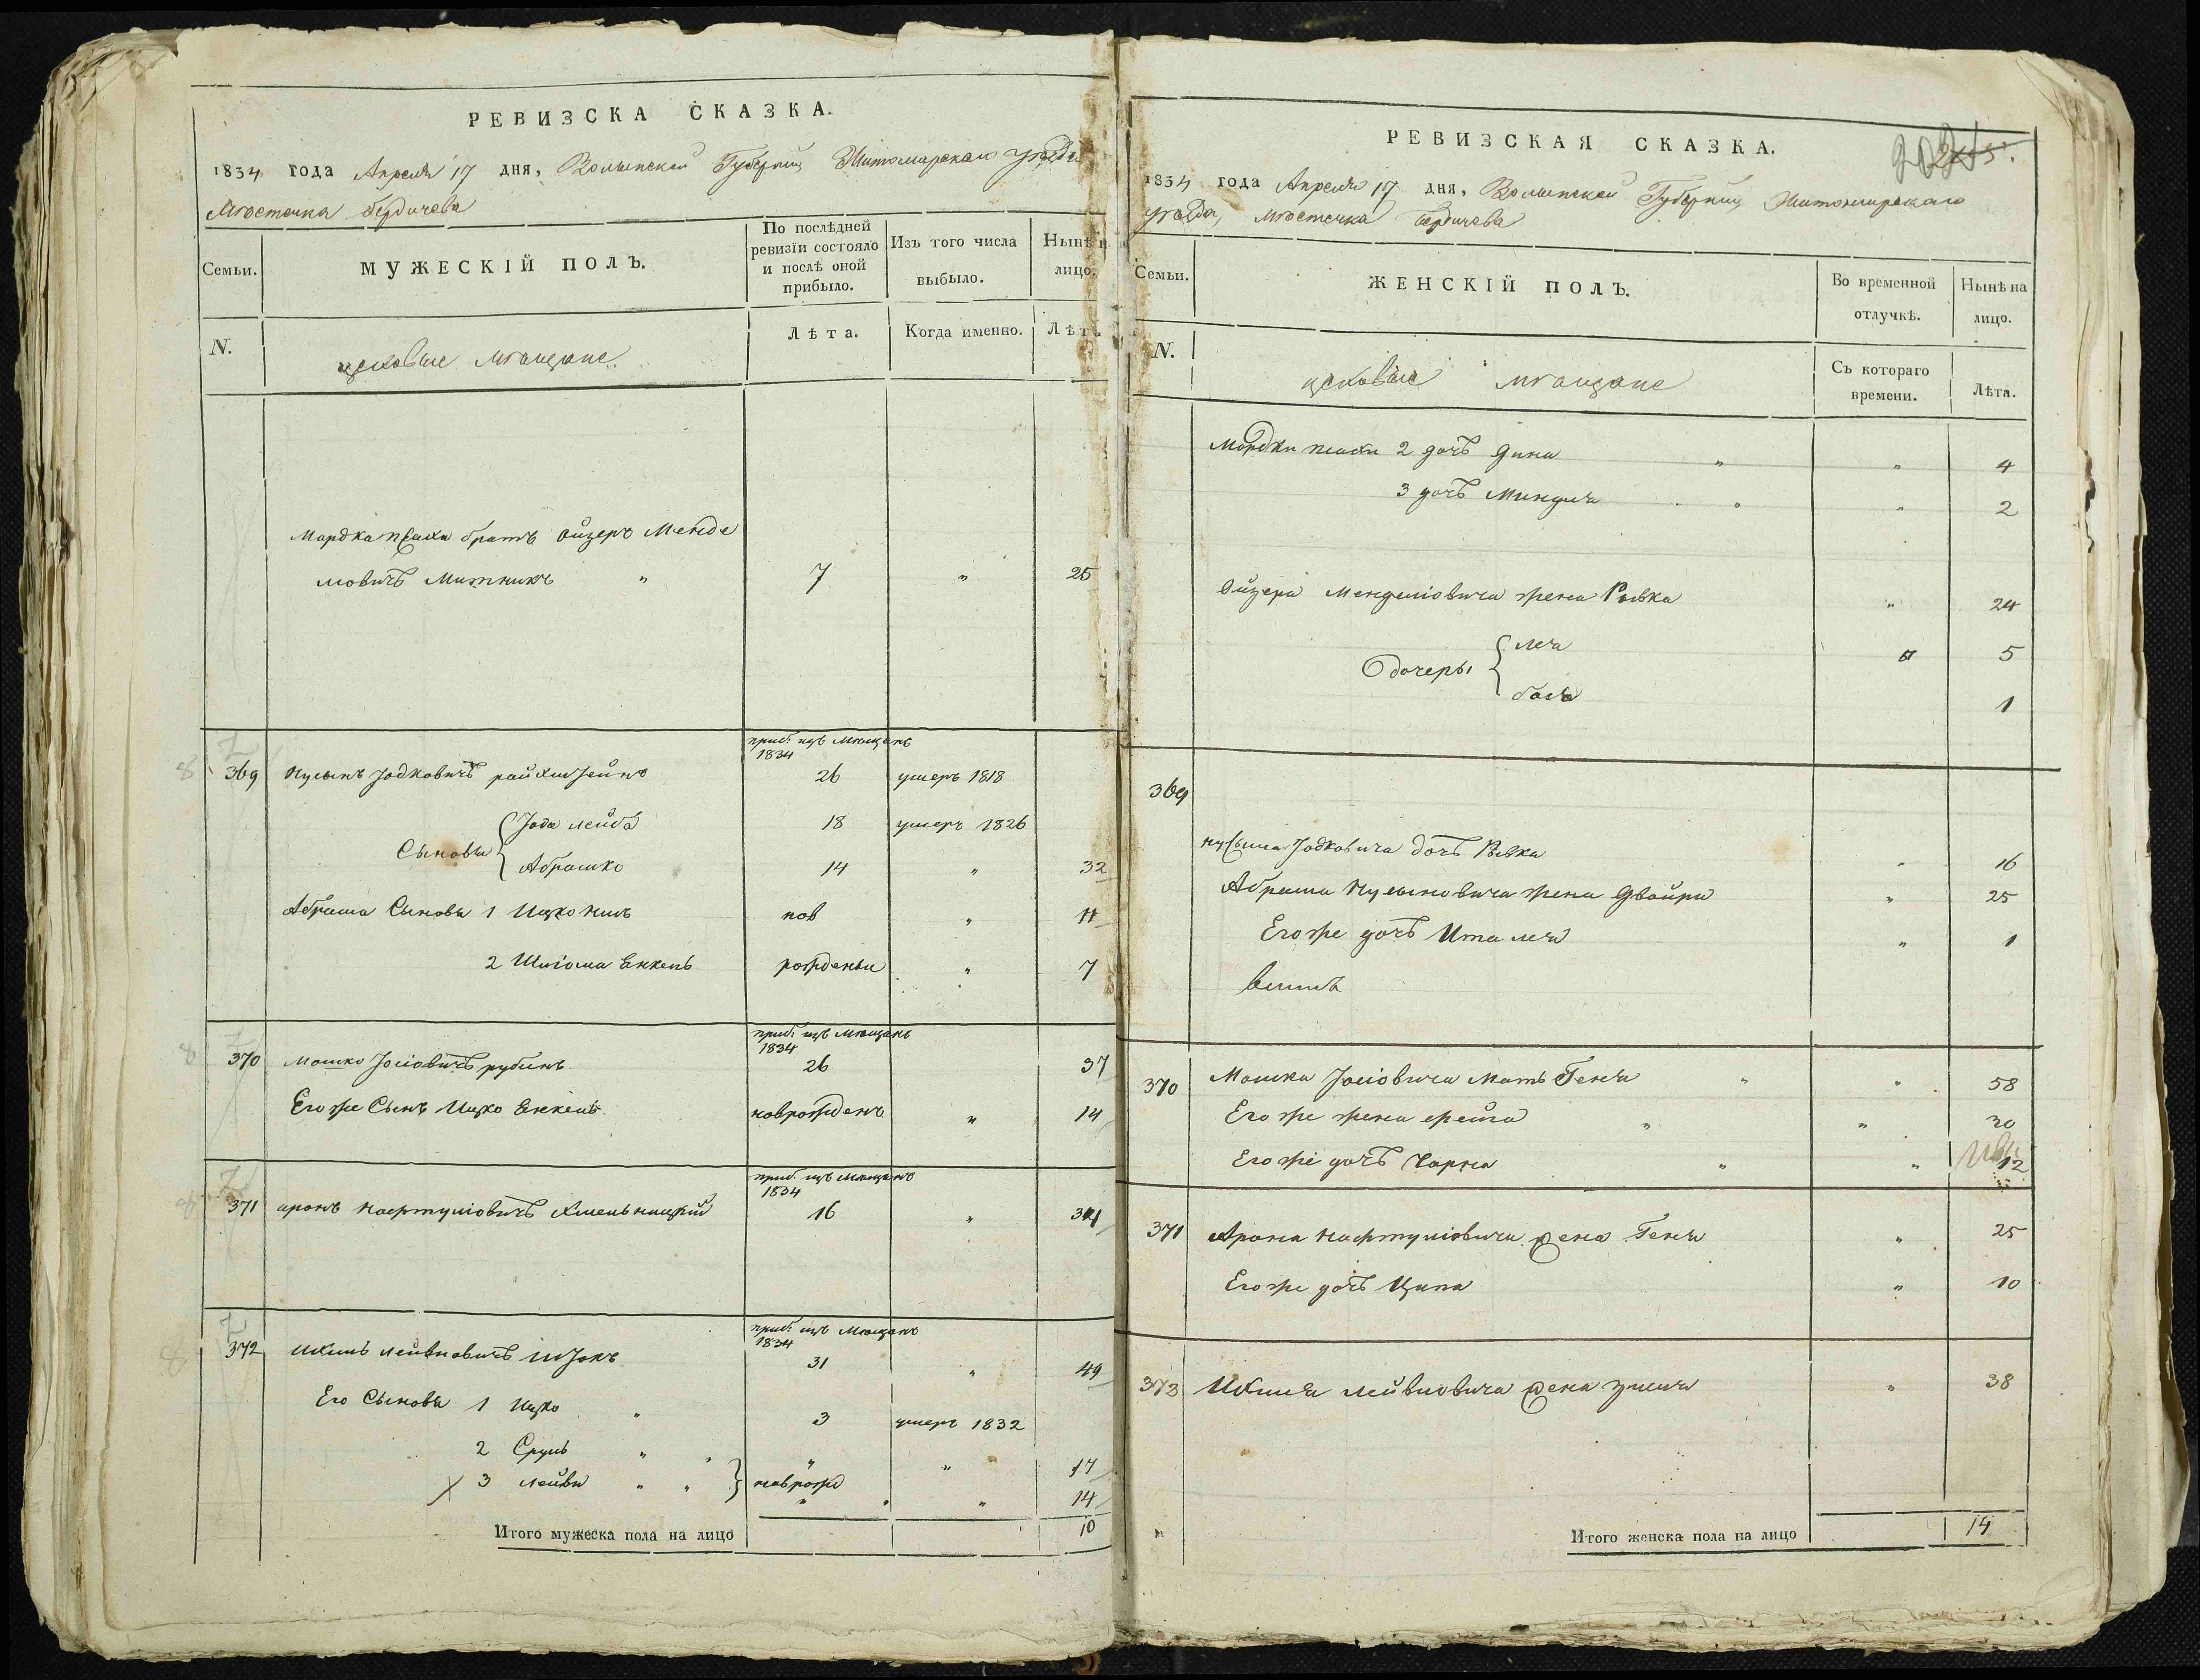 РЕВИЗСКА СКАЗКА.
1834 года Апреля 17 дня, Волынской Губернии Житомирскаго уезда
Местечка Бердичева
Семьи.
МУЖЕСКІЙ ПОЛЪ.
По послѣдней ревизіи состояло и послѣ оной прибыло.
Изъ того числа выбыло.
Нынѣ на лицо.
N.
цеховые мѣщане
Лѣта.
Когда именно.
Лѣта
Мордка псахи братъ Ойзеръ Менде
левичъ Митникъ " 7 " 25
приб: изъ Мещанъ
1834
369 Нусынъ Іодковичъ 26 умеръ 1818
Сыновья { Іода лейба 18 умеръ 1826
Абрашко 14 " 32
Абраша Сыновья 1 Ицко нов " 11
2 Шліома Енкель рожденыи " 7
приб: изъ Мещанъ
1834
370 Мошко Іосіовичъ рубинъ 26 37
Его же Сынъ Ицко Енкель новрожденъ " 14
приб: изъ Мещанъ
1834
371 аронъ Нафтуліовичъ Хмельницкій 16 " 34
приб: изъ Мещанъ
1834
372 Ихилъ лейвиовичъ 31 " 49
Его Сыновья 1 Ицко " 3 умеръ 1832
2 Сруль " " " " 17
3 лейви " " }новрожд " " 14
Итого мужеска пола на лицо 10
РЕВИЗСКАЯ СКАЗКА.
1834 года Апреля 17 дня, Волынской Губернии Житомирскаго
уезда, местечка Бердичева
Семьи.
ЖЕНСКІЙ ПОЛЪ.
Во временной отлучкѣ.
Нынѣ на лицо.
N.
цеховые мѣщане
Съ котораго времени.
Лѣта.
Мордки псахи 2 дочь Дина " " 4
3 дочь Миндля " " 2
Ойзера Менделіовича жена Ривка " 24
дочеры { лея " 5
бася 1
369
нусына Іодковича дочь Ривка " 16
Абраша Нусыновича жена Двойра " 25
Его же дочь Ита лея " 1
370 Мошка Іосіовича Мать Геня " " 58
Его же жена фейга " " 30
Его же дочь Чарна " " 12
371 Арона Нафтуліовича жена Геня " 25
Его же дочь Ципа " 10
373 Ихиля лейвиовича жена злата " 38
Итого женска пола на лицо 14